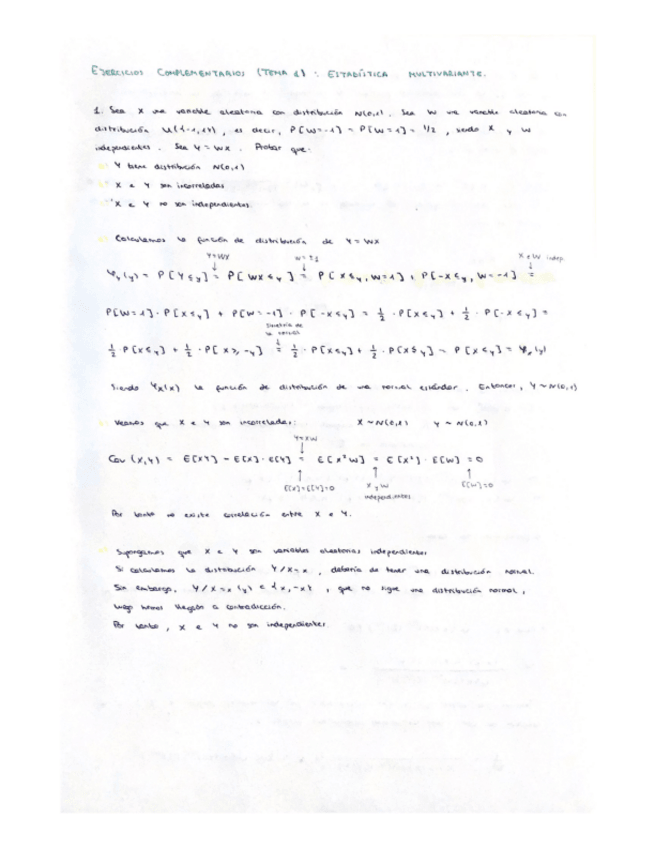 EJERCICIOS COMPLEMENTARIOS (TEMA 1) : ESTADÍSTICA MULTIVARIANTE.
1. Sea X una variable aleatoria con distribución N(0,1). Sea W una variable aleatoria con
distribución U({-1,1}), es decir, P[W=-1] = P[W=1] = 1/2, siendo X y W
independientes. Sea Y = WX. Probar que:
Y tiene distribución N(0,1)
X e Y son incorreladas
X e Y no son independientes.
Calculamos la función de distribución de Y = WX
Y=WX W=±1 X e W indep.
φY(y) = P[Y≤y] = P[WX≤y] = P[X≤y, W=1] + P[-X≤y, W=-1] =
P[W=1]·P[X≤y] + P[W=-1]·P[-X≤y] = 1/2·P[X≤y] + 1/2·P[-X≤y] =
Simetría de la normal
1/2·P[X≤y] + 1/2·P[X≥-y] = 1/2·P[X≤y] + 1/2·P[X≤y] = P[X≤y] = φX(y)
Siendo φX(x) la función de distribución de una normal estándar. Entonces, Y ~ N(0,1)
Veamos que X e Y son incorreladas: X ~ N(0,1) Y ~ N(0,1)
Y=XW
Cov(X,Y) = E[XY] - E[X]·E[Y] = E[X²W] = E[X²]·E[W] = 0
E[X]=E[Y]=0 X y W independientes E[W]=0
Por tanto no existe correlación entre X e Y.
Supongamos que X e Y son variables aleatorias independientes
Si calculamos la distribución Y/X=x, debería de tener una distribución normal.
Sin embargo, Y/X=x (y) ∈ {x,-x}, que no sigue una distribución normal,
luego hemos llegado a contradicción.
Por tanto, X e Y no son independientes.